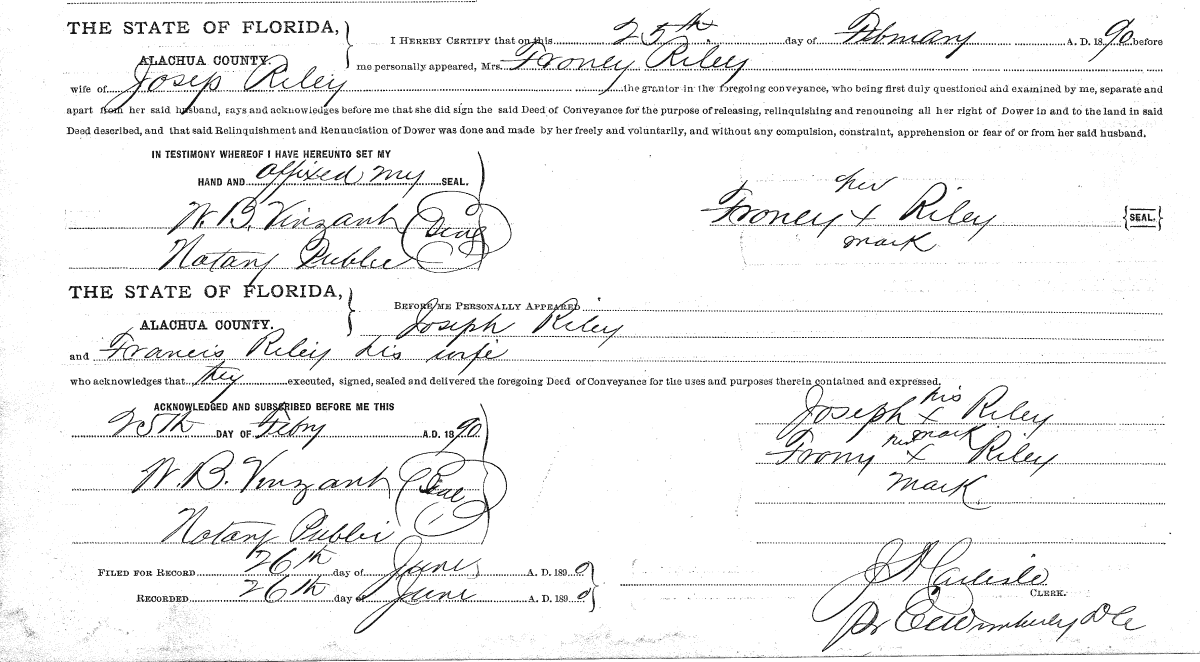 THE STATE OF FLORIDA,
ALACHUA COUNTY.
I HEREBY CERTIFY that on this 25th day of February A. D. 1890, before
me personally appeared, Mrs. Froney Riley
wife of Josep Riley, the grantor in the foregoing conveyance, who being first duly questioned and examined by me, separate and
apart from her said husband, says and acknowledges before me that she did sign the said Deed of Conveyance for the purpose of releasing, relinquishing and renouncing all her right of Dower in and to the land in said
Deed described, and that said Relinquishment and Renunciation of Dower was done and made by her freely and voluntarily, and without any compulsion, constraint, apprehension or fear of or from her said husband.
IN TESTIMONY WHEREOF I HAVE HEREUNTO SET MY
HAND AND affixed my SEAL.
W. B. Vinzant (Seal)
Notary Public
her
Froney x Riley {SEAL.}
mark
THE STATE OF FLORIDA,
ALACHUA COUNTY.
BEFORE ME PERSONALLY APPEARED
Joseph Riley
and Francis Riley his wife
who acknowledges that they executed, signed, sealed and delivered the foregoing Deed of Conveyance for the uses and purposes therein contained and expressed.
ACKNOWLEDGED AND SUBSCRIBED BEFORE ME THIS
25th DAY OF Febry A.D. 1890
W. B. Vinzant (Seal)
Notary Public
his
Joseph x Riley
mark
her
Frony x Riley
mark
FILED FOR RECORD 26th day of June A. D. 1890
RECORDED 26th day of June A. D. 1890
Carlisle
CLERK.
Pr Wimberley D C